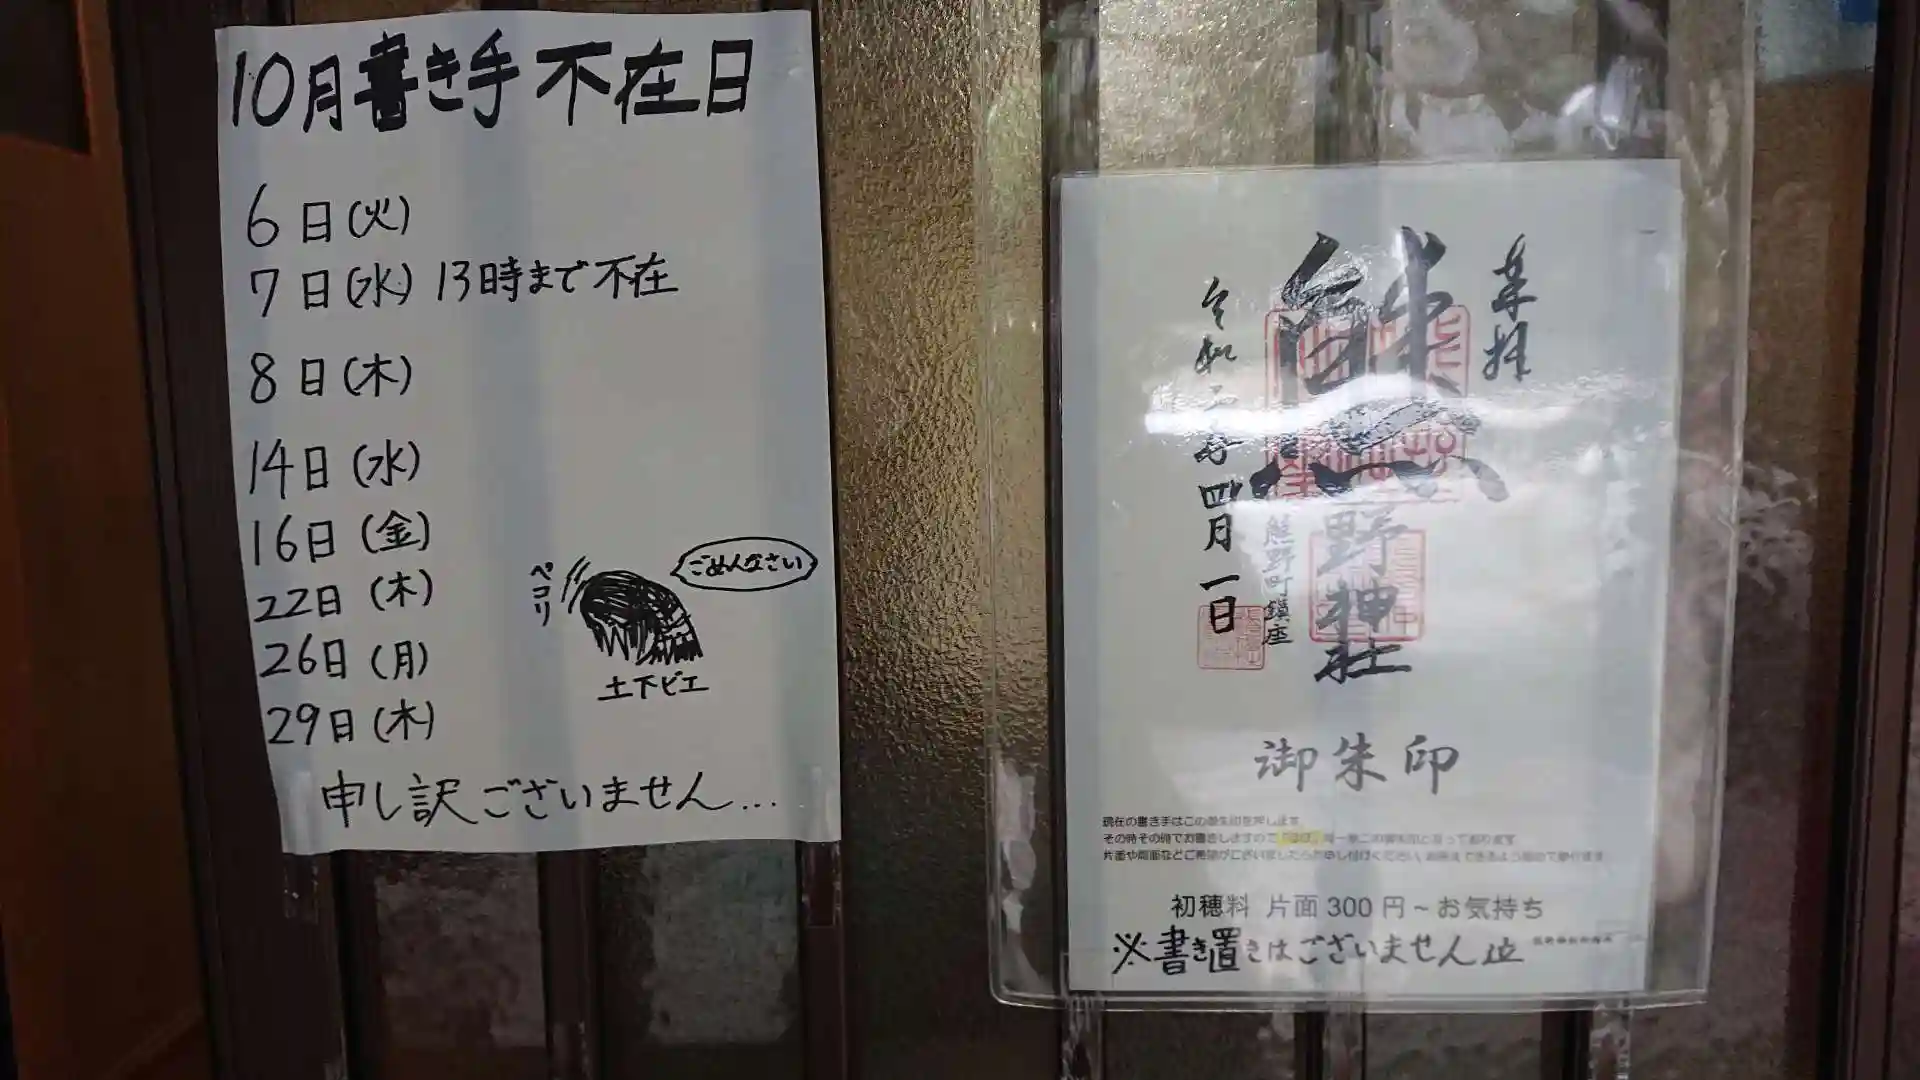 10月書き手不在日
6日(火)
7日(水) 13時まで不在
8日(木)
14日(水)
16日(金)
22日(木)
26日(月)
29日(木)
ペコリ
ごめんなさい
土下ビエ
申し訳ございません...
奉拝
熊野神社
熊野町鎮座
令和二年四月一日
御朱印
現在の書き手はこの御朱印を押します
その時その時でお書きしますので
片面や両面などご希望がございましたらお申し付けください
初穂料 片面 300 円~お気持ち
※書き置きはございません